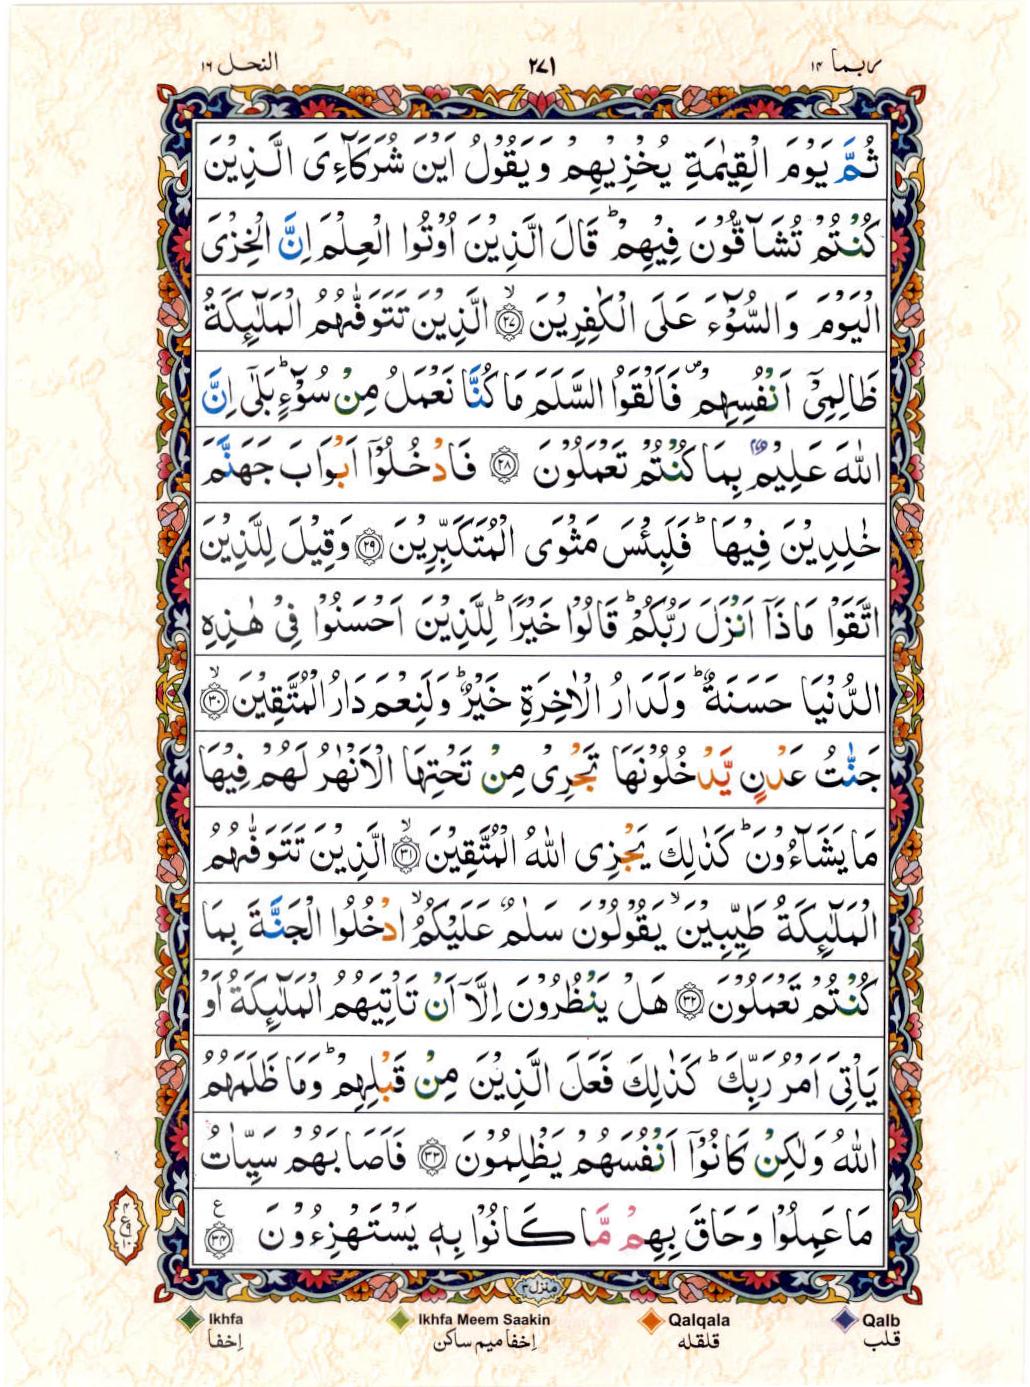 النحل ١٦ ٢٧١ ربما ١٤
ثُمَّ يَوْمَ الْقِيٰمَةِ يُخْزِيْهِمْ وَيَقُوْلُ اَيْنَ شُرَكَآءِیَ الَّذِيْنَ
كُنْتُمْ تُشَآقُّوْنَ فِيْهِمْ ؕ قَالَ الَّذِيْنَ اُوْتُوا الْعِلْمَ اِنَّ الْخِزْیَ
الْيَوْمَ وَالسُّوْٓءَ عَلَی الْكٰفِرِيْنَ ۙ﴿۲۷﴾ الَّذِيْنَ تَتَوَفّٰىهُمُ الْمَلٰٓئِكَةُ
ظَالِمِیْۤ اَنْفُسِهِمْ ۪ فَاَلْقَوُا السَّلَمَ مَا كُنَّا نَعْمَلُ مِنْ سُوْٓءٍ ؕ بَلٰۤی اِنَّ
اللّٰهَ عَلِيْمٌۢ بِمَا كُنْتُمْ تَعْمَلُوْنَ ﴿۲۸﴾ فَادْخُلُوْۤا اَبْوَابَ جَهَنَّمَ
خٰلِدِيْنَ فِيْهَا ؕ فَلَبِئْسَ مَثْوَی الْمُتَكَبِّرِيْنَ ﴿۲۹﴾ وَقِيْلَ لِلَّذِيْنَ
اتَّقَوْا مَاذَاۤ اَنْزَلَ رَبُّكُمْ ؕ قَالُوْا خَيْرًا ؕ لِلَّذِيْنَ اَحْسَنُوْا فِیْ هٰذِهِ
الدُّنْيَا حَسَنَةٌ ؕ وَلَدَارُ الْاٰخِرَةِ خَيْرٌ ؕ وَلَنِعْمَ دَارُ الْمُتَّقِيْنَ ۙ﴿۳۰﴾
جَنّٰتُ عَدْنٍ يَّدْخُلُوْنَهَا تَجْرِیْ مِنْ تَحْتِهَا الْاَنْهٰرُ لَهُمْ فِيْهَا
مَا يَشَآءُوْنَ ؕ كَذٰلِكَ يَجْزِی اللّٰهُ الْمُتَّقِيْنَ ۙ﴿۳۱﴾ الَّذِيْنَ تَتَوَفّٰىهُمُ
الْمَلٰٓئِكَةُ طَيِّبِيْنَ ۙ يَقُوْلُوْنَ سَلٰمٌ عَلَيْكُمُ ۙ ادْخُلُوا الْجَنَّةَ بِمَا
كُنْتُمْ تَعْمَلُوْنَ ﴿۳۲﴾ هَلْ يَنْظُرُوْنَ اِلَّاۤ اَنْ تَاْتِيَهُمُ الْمَلٰٓئِكَةُ اَوْ
يَاْتِیَ اَمْرُ رَبِّكَ ؕ كَذٰلِكَ فَعَلَ الَّذِيْنَ مِنْ قَبْلِهِمْ ؕ وَمَا ظَلَمَهُمُ
اللّٰهُ وَلٰكِنْ كَانُوْۤا اَنْفُسَهُمْ يَظْلِمُوْنَ ﴿۳۳﴾ فَاَصَابَهُمْ سَيِّاٰتُ
مَا عَمِلُوْا وَحَاقَ بِهِمْ مَّا كَانُوْا بِهٖ يَسْتَهْزِءُوْنَ ﴿۳۴﴾ ع
منزل ۳
Ikhfa Ikhfa Meem Saakin Qalqala Qalb
اِخفا اِخفا میم ساکن قلقله قلب